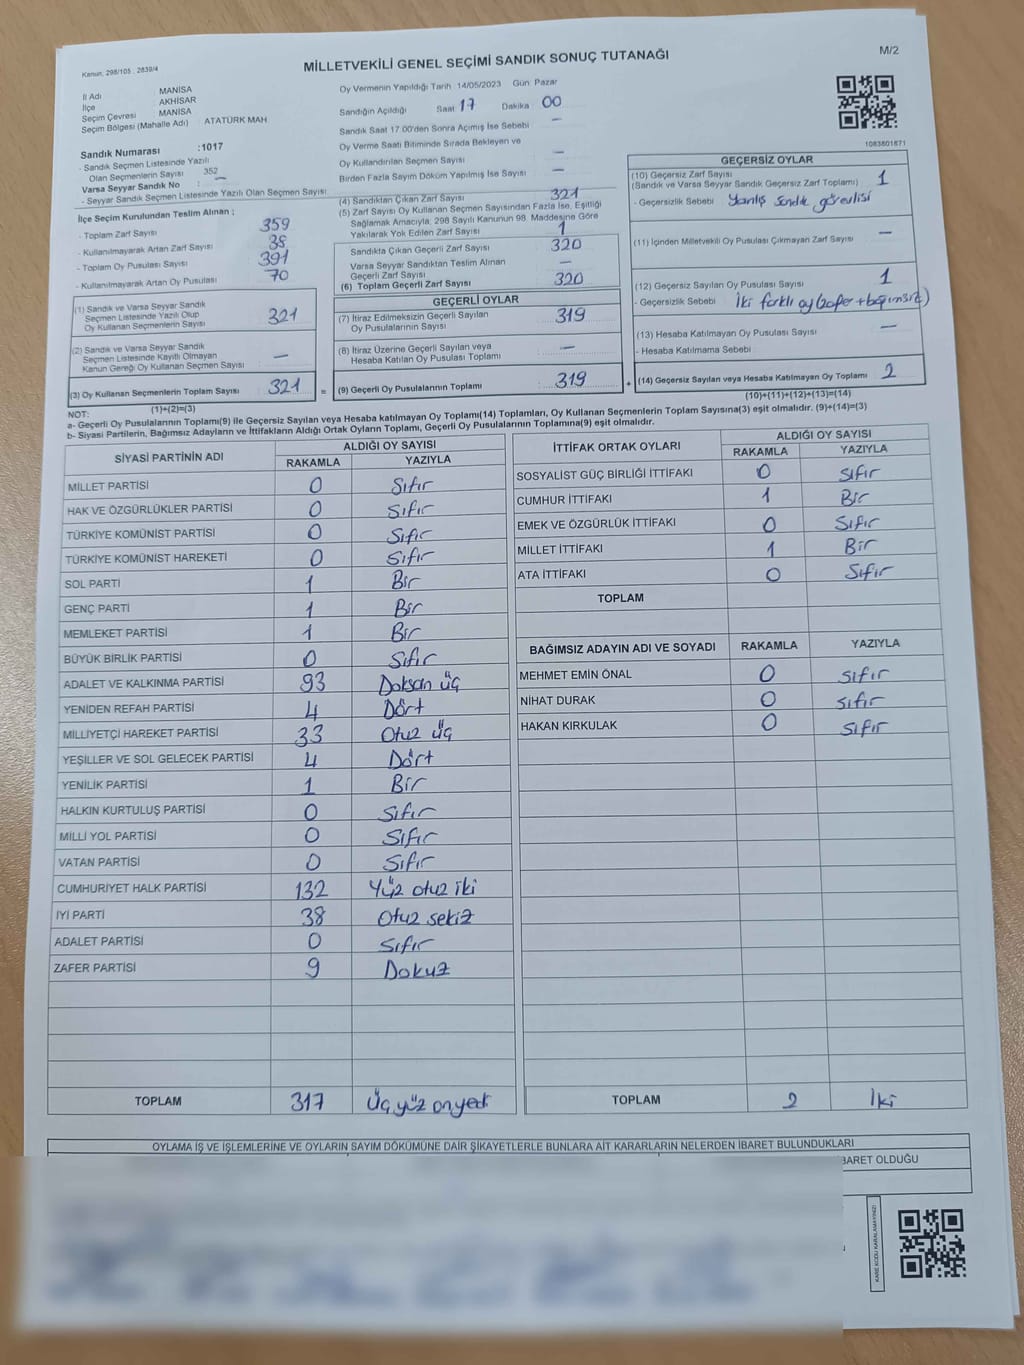 Kanun, 298/105 : 2839/4
MİLLETVEKİLİ GENEL SEÇİMİ SANDIK SONUÇ TUTANAĞI
M/2
İl Adı MANİSA
İlçe AKHİSAR
Seçim Çevresi MANİSA
Seçim Bölgesi (Mahalle Adı) ATATÜRK MAH
Sandık Numarası :1017
- Sandık Seçmen Listesinde Yazılı
Olan Seçmenlerin Sayısı 352
Varsa Seyyar Sandık No : –
- Seyyar Sandık Seçmen Listesinde Yazılı Olan Seçmen Sayısı
İlçe Seçim Kurulundan Teslim Alınan ;
- Toplam Zarf Sayısı 359
- Kullanılmayarak Artan Zarf Sayısı 38
- Toplam Oy Pusulası Sayısı 391
- Kullanılmayarak Artan Oy Pusulası 70
(1) Sandık ve Varsa Seyyar Sandık
Seçmen Listesinde Yazılı Olup
Oy Kullanan Seçmenlerin Sayısı 321
(2) Sandık ve Varsa Seyyar Sandık
Seçmen Listesinde Kayıtlı Olmayan
Kanun Gereği Oy Kullanan Seçmen Sayısı –
(3) Oy Kullanan Seçmenlerin Toplam Sayısı 321 =
(1)+(2)=(3)
Oy Vermenin Yapıldığı Tarih 14/05/2023 Gün Pazar
Sandığın Açıldığı Saat 17 Dakika 00
Sandık Saat 17.00'den Sonra Açılmış İse Sebebi –
Oy Verme Saati Bitiminde Sırada Bekleyen ve
Oy Kullandırılan Seçmen Sayısı –
Birden Fazla Sayım Döküm Yapılmış İse Sayısı –
(4) Sandıktan Çıkan Zarf Sayısı 321
(5) Zarf Sayısı Oy Kullanan Seçmen Sayısından Fazla İse, Eşitliği
Sağlamak Amacıyla, 298 Sayılı Kanunun 98. Maddesine Göre
Yakılarak Yok Edilen Zarf Sayısı 1
Sandıkta Çıkan Geçerli Zarf Sayısı 320
Varsa Seyyar Sandıktan Teslim Alınan
Geçerli Zarf Sayısı –
(6) Toplam Geçerli Zarf Sayısı 320
GEÇERLİ OYLAR
(7) İtiraz Edilmeksizin Geçerli Sayılan
Oy Pusulalarının Sayısı 319
(8) İtiraz Üzerine Geçerli Sayılan veya
Hesaba Katılan Oy Pusulası Toplamı –
(9) Geçerli Oy Pusulalarının Toplamı 319 +
1083801671
GEÇERSİZ OYLAR
(10) Geçersiz Zarf Sayısı
(Sandık ve Varsa Seyyar Sandık Geçersiz Zarf Toplamı) 1
- Geçersizlik Sebebi Yanlış sandık görevlisi
(11) İçinden Milletvekili Oy Pusulası Çıkmayan Zarf Sayısı –
(12) Geçersiz Sayılan Oy Pusulası Sayısı 1
- Geçersizlik Sebebi İki farklı oy (zafer + bağımsız)
(13) Hesaba Katılmayan Oy Pusulası Sayısı –
- Hesaba Katılmama Sebebi
(14) Geçersiz Sayılan veya Hesaba Katılmayan Oy Toplamı 2
(10)+(11)+(12)+(13)=(14)
NOT:
a- Geçerli Oy Pusulalarının Toplamı(9) ile Geçersiz Sayılan veya Hesaba katılmayan Oy Toplamı(14) Toplamları, Oy Kullanan Seçmenlerin Toplam Sayısına(3) eşit olmalıdır. (9)+(14)=(3)
b- Siyasi Partilerin, Bağımsız Adayların ve İttifakların Aldığı Ortak Oyların Toplamı, Geçerli Oy Pusulalarının Toplamına(9) eşit olmalıdır.
SİYASİ PARTİNİN ADI ALDIĞI OY SAYISI
RAKAMLA YAZIYLA
MİLLET PARTİSİ 0 Sıfır
HAK VE ÖZGÜRLÜKLER PARTİSİ 0 Sıfır
TÜRKİYE KOMÜNİST PARTİSİ 0 Sıfır
TÜRKİYE KOMÜNİST HAREKETİ 0 Sıfır
SOL PARTİ 1 Bir
GENÇ PARTİ 1 Bir
MEMLEKET PARTİSİ 1 Bir
BÜYÜK BİRLİK PARTİSİ 0 Sıfır
ADALET VE KALKINMA PARTİSİ 93 Doksan üç
YENİDEN REFAH PARTİSİ 4 Dört
MİLLİYETÇİ HAREKET PARTİSİ 33 Otuz üç
YEŞİLLER VE SOL GELECEK PARTİSİ 4 Dört
YENİLİK PARTİSİ 1 Bir
HALKIN KURTULUŞ PARTİSİ 0 Sıfır
MİLLİ YOL PARTİSİ 0 Sıfır
VATAN PARTİSİ 0 Sıfır
CUMHURİYET HALK PARTİSİ 132 Yüz otuz iki
İYİ PARTİ 38 Otuz sekiz
ADALET PARTİSİ 0 Sıfır
ZAFER PARTİSİ 9 Dokuz
TOPLAM 317 Üç yüz onyedi
İTTİFAK ORTAK OYLARI ALDIĞI OY SAYISI
RAKAMLA YAZIYLA
SOSYALİST GÜÇ BİRLİĞİ İTTİFAKI 0 Sıfır
CUMHUR İTTİFAKI 1 Bir
EMEK VE ÖZGÜRLÜK İTTİFAKI 0 Sıfır
MİLLET İTTİFAKI 1 Bir
ATA İTTİFAKI 0 Sıfır
TOPLAM
BAĞIMSIZ ADAYIN ADI VE SOYADI RAKAMLA YAZIYLA
MEHMET EMİN ÖNAL 0 Sıfır
NİHAT DURAK 0 Sıfır
HAKAN KIRKULAK 0 Sıfır
TOPLAM 2 İki
OYLAMA İŞ VE İŞLEMLERİNE VE OYLARIN SAYIM DÖKÜMÜNE DAİR ŞİKAYETLERLE BUNLARA AİT KARARLARIN NELERDEN İBARET BULUNDUKLARI
BARET OLDUĞU
KARE KODU KARALAMAYINIZ!